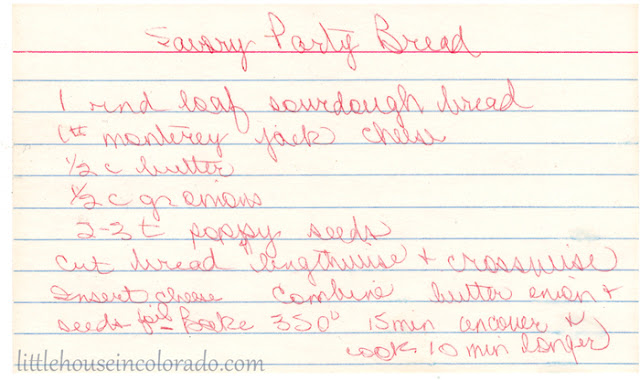 Savory Party Bread
1 rnd loaf sourdough bread
1# monterey jack cheese
1/2 c butter
1/2 c gr onions
2-3 t poppy seeds
cut bread lengthwise + crosswise
Insert cheese combine butter onion +
seeds foil Bake 350° 15 min uncover &
cook 10 min longer
littlehouseincolorado.com